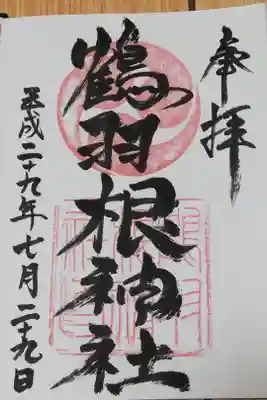 奉拝
鶴羽根神社
平成二十九年七月二十九日